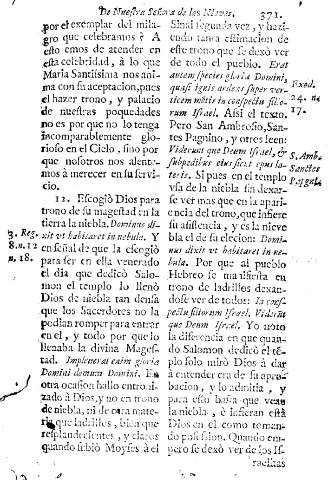 De Nuestra Señora de las Nieves.
371.
por el exemplar del mila-
gro que celebramos è A
esto emos de atender en
esta celebridad, à lo que
Maria Santissima nos ani-
ma con su aceptacion, pues
el hazer trono, y palacio
de nuestras poquedades
no es por que no lo tenga
incomparablemente glo-
rioso en el Cielo, sino por
que nosotros nos alente-
mos à merecer en su servi-
cio.
12. Escogiò Dios para
trono de su magestad en la
tierra la niebla. Dominus di-
xit vt habitaret in nebula. Y
en señal de que la escogiò
para ser en ella venerado
el dia que dedicò Salo-
mon el templo lo llenò
Dios de niebla tan densa
que los Sacerdotes no la
podian romper para entrar
en el, y todo por que lo
llenaba la divina Mages-
tad. Impleverat enim gloria
Domini domum Domini. En
otra ocasion hallo entro-
izado à Dios, y no en trono
de niebla, ni de otra mate-
ria que ladrillos, bien que
resplandecientes, y claros
quando subiò Moyses à el
3. Reg.
8. n. 12
n. 18.
Sinai segunda vez, y hazi-
endo tanta estimacion de
este trono que se dexò ver
de todo el pueblo. Erat
autem species gloriæ Domini,
quasi ignis ardens super ver-
ticem montis in conspectu filio-
rum Israel. Asi el texto.
Pero San Ambrosio, San-
tes Pagnino, y otros leen:
Viderunt que Deum Israel, &
subpedibus eius sicut opus la-
teris. Si pues en el templo
vsa de la niebla sin dexar-
se ver mas que en la aparic-
encia del trono, que infiere
su asistencia, y es la nieve
bla el de su eleccion: Domi-
nus dixit vt habitaret in ne-
bula. Por que al pueblo
Hebreo se manifiesta en
trono de ladrillos dexan-
dose ver de todos: In cons-
pectu filiorum Israel. Viderunt
que Deum Israel. Yo noto
la diferencia en que quan-
do Salomon dedicò el tẽ-
plo solo mirò Dios à dar
à entender era de su apro-
bacion, y lo admitia, y
para esto basta que vean
la niebla, è infieran està
Dios en el como toman-
do posesion. Quando em-
pero se dexò ver de los Is-
raelitas
Exod.
24. nu
17.
S. Amb.
Sanctes
Pagn.